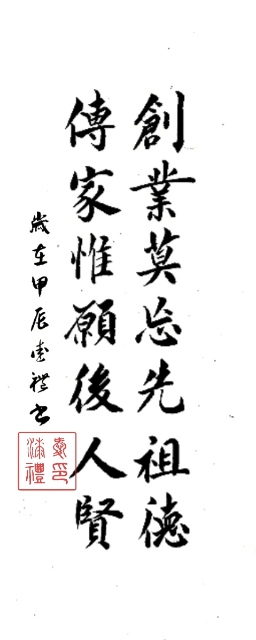 創業莫忘先祖德
傳家惟願後人賢
歲在甲辰壹禮書